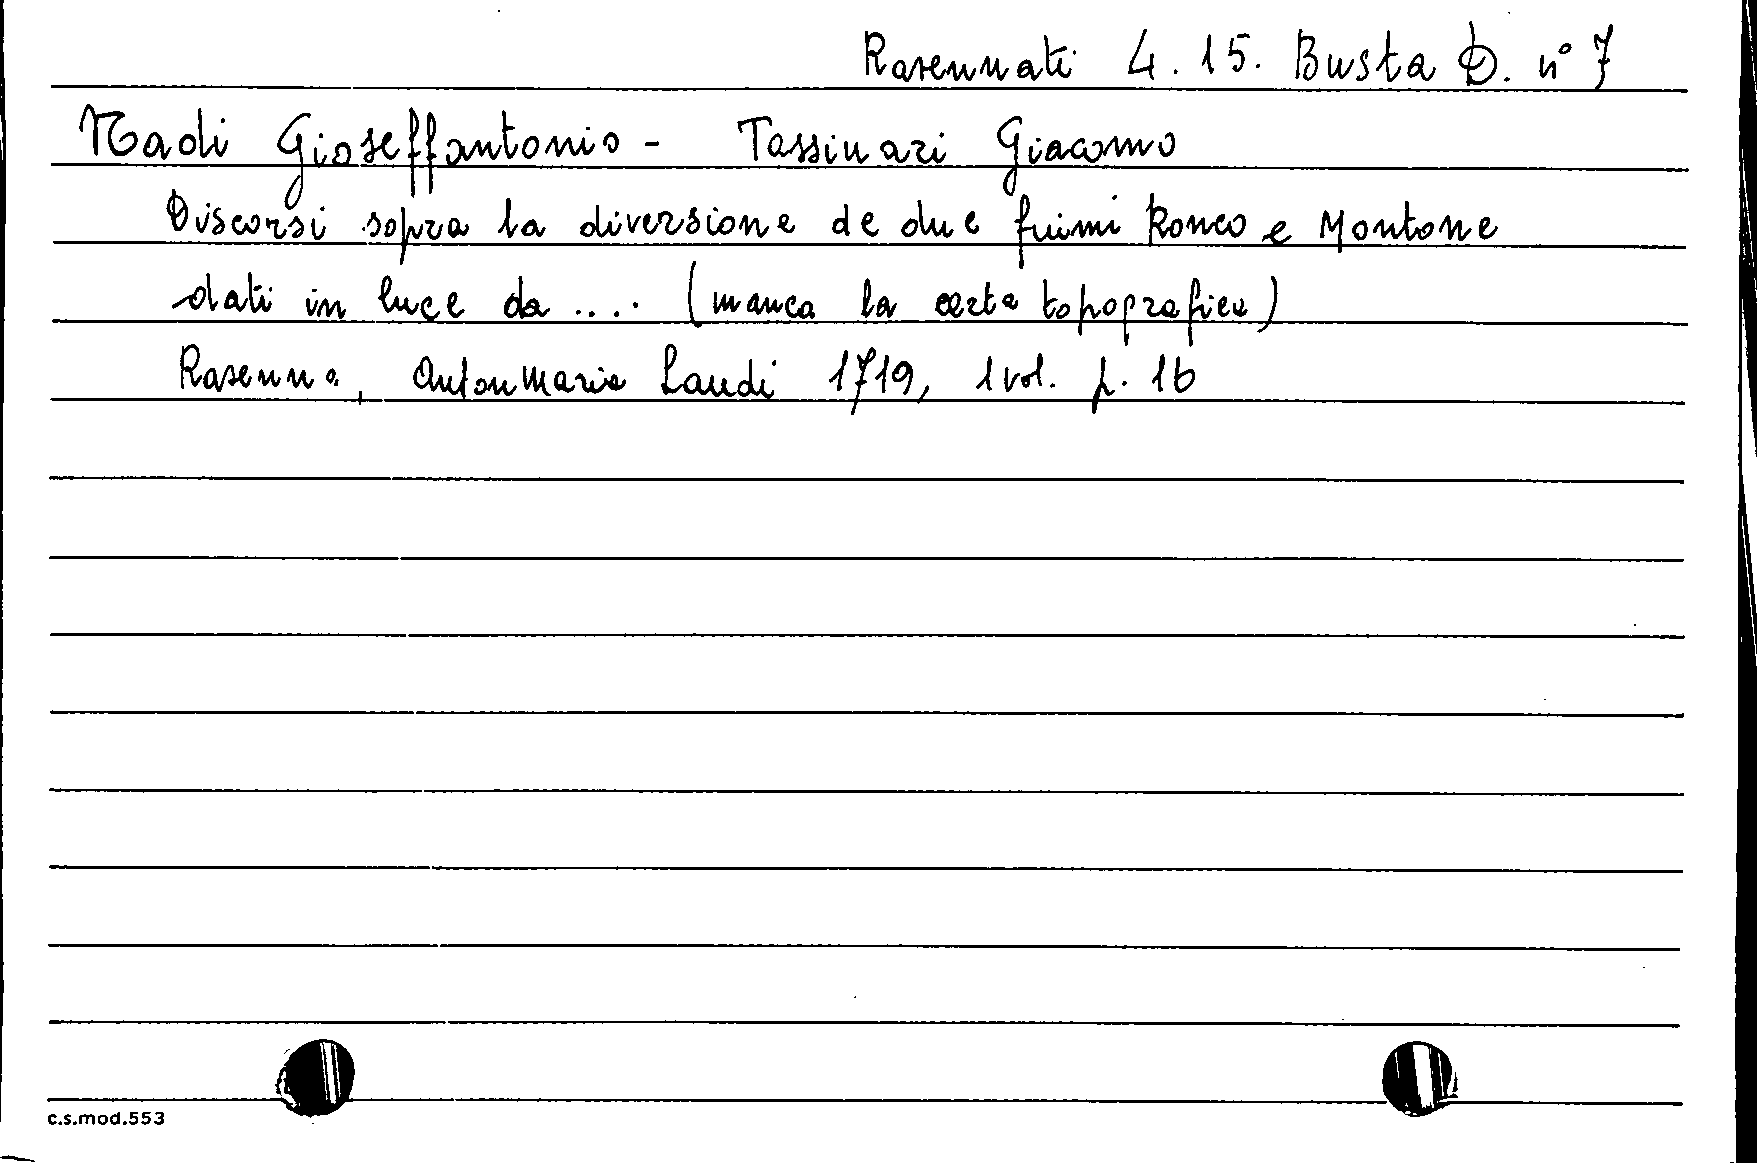 Ravennati 4.15. Busta D. n° 7
Nadi Gioseffantonio - Tassinari Giacomo
Discorsi sopra la diversione de due fiumi Ronco e Montone
dati in luce da .... (manca la carta topografica)
Ravenna, AntonMaria Landi 1719, 1 vol. p. 16
c.s.mod.553